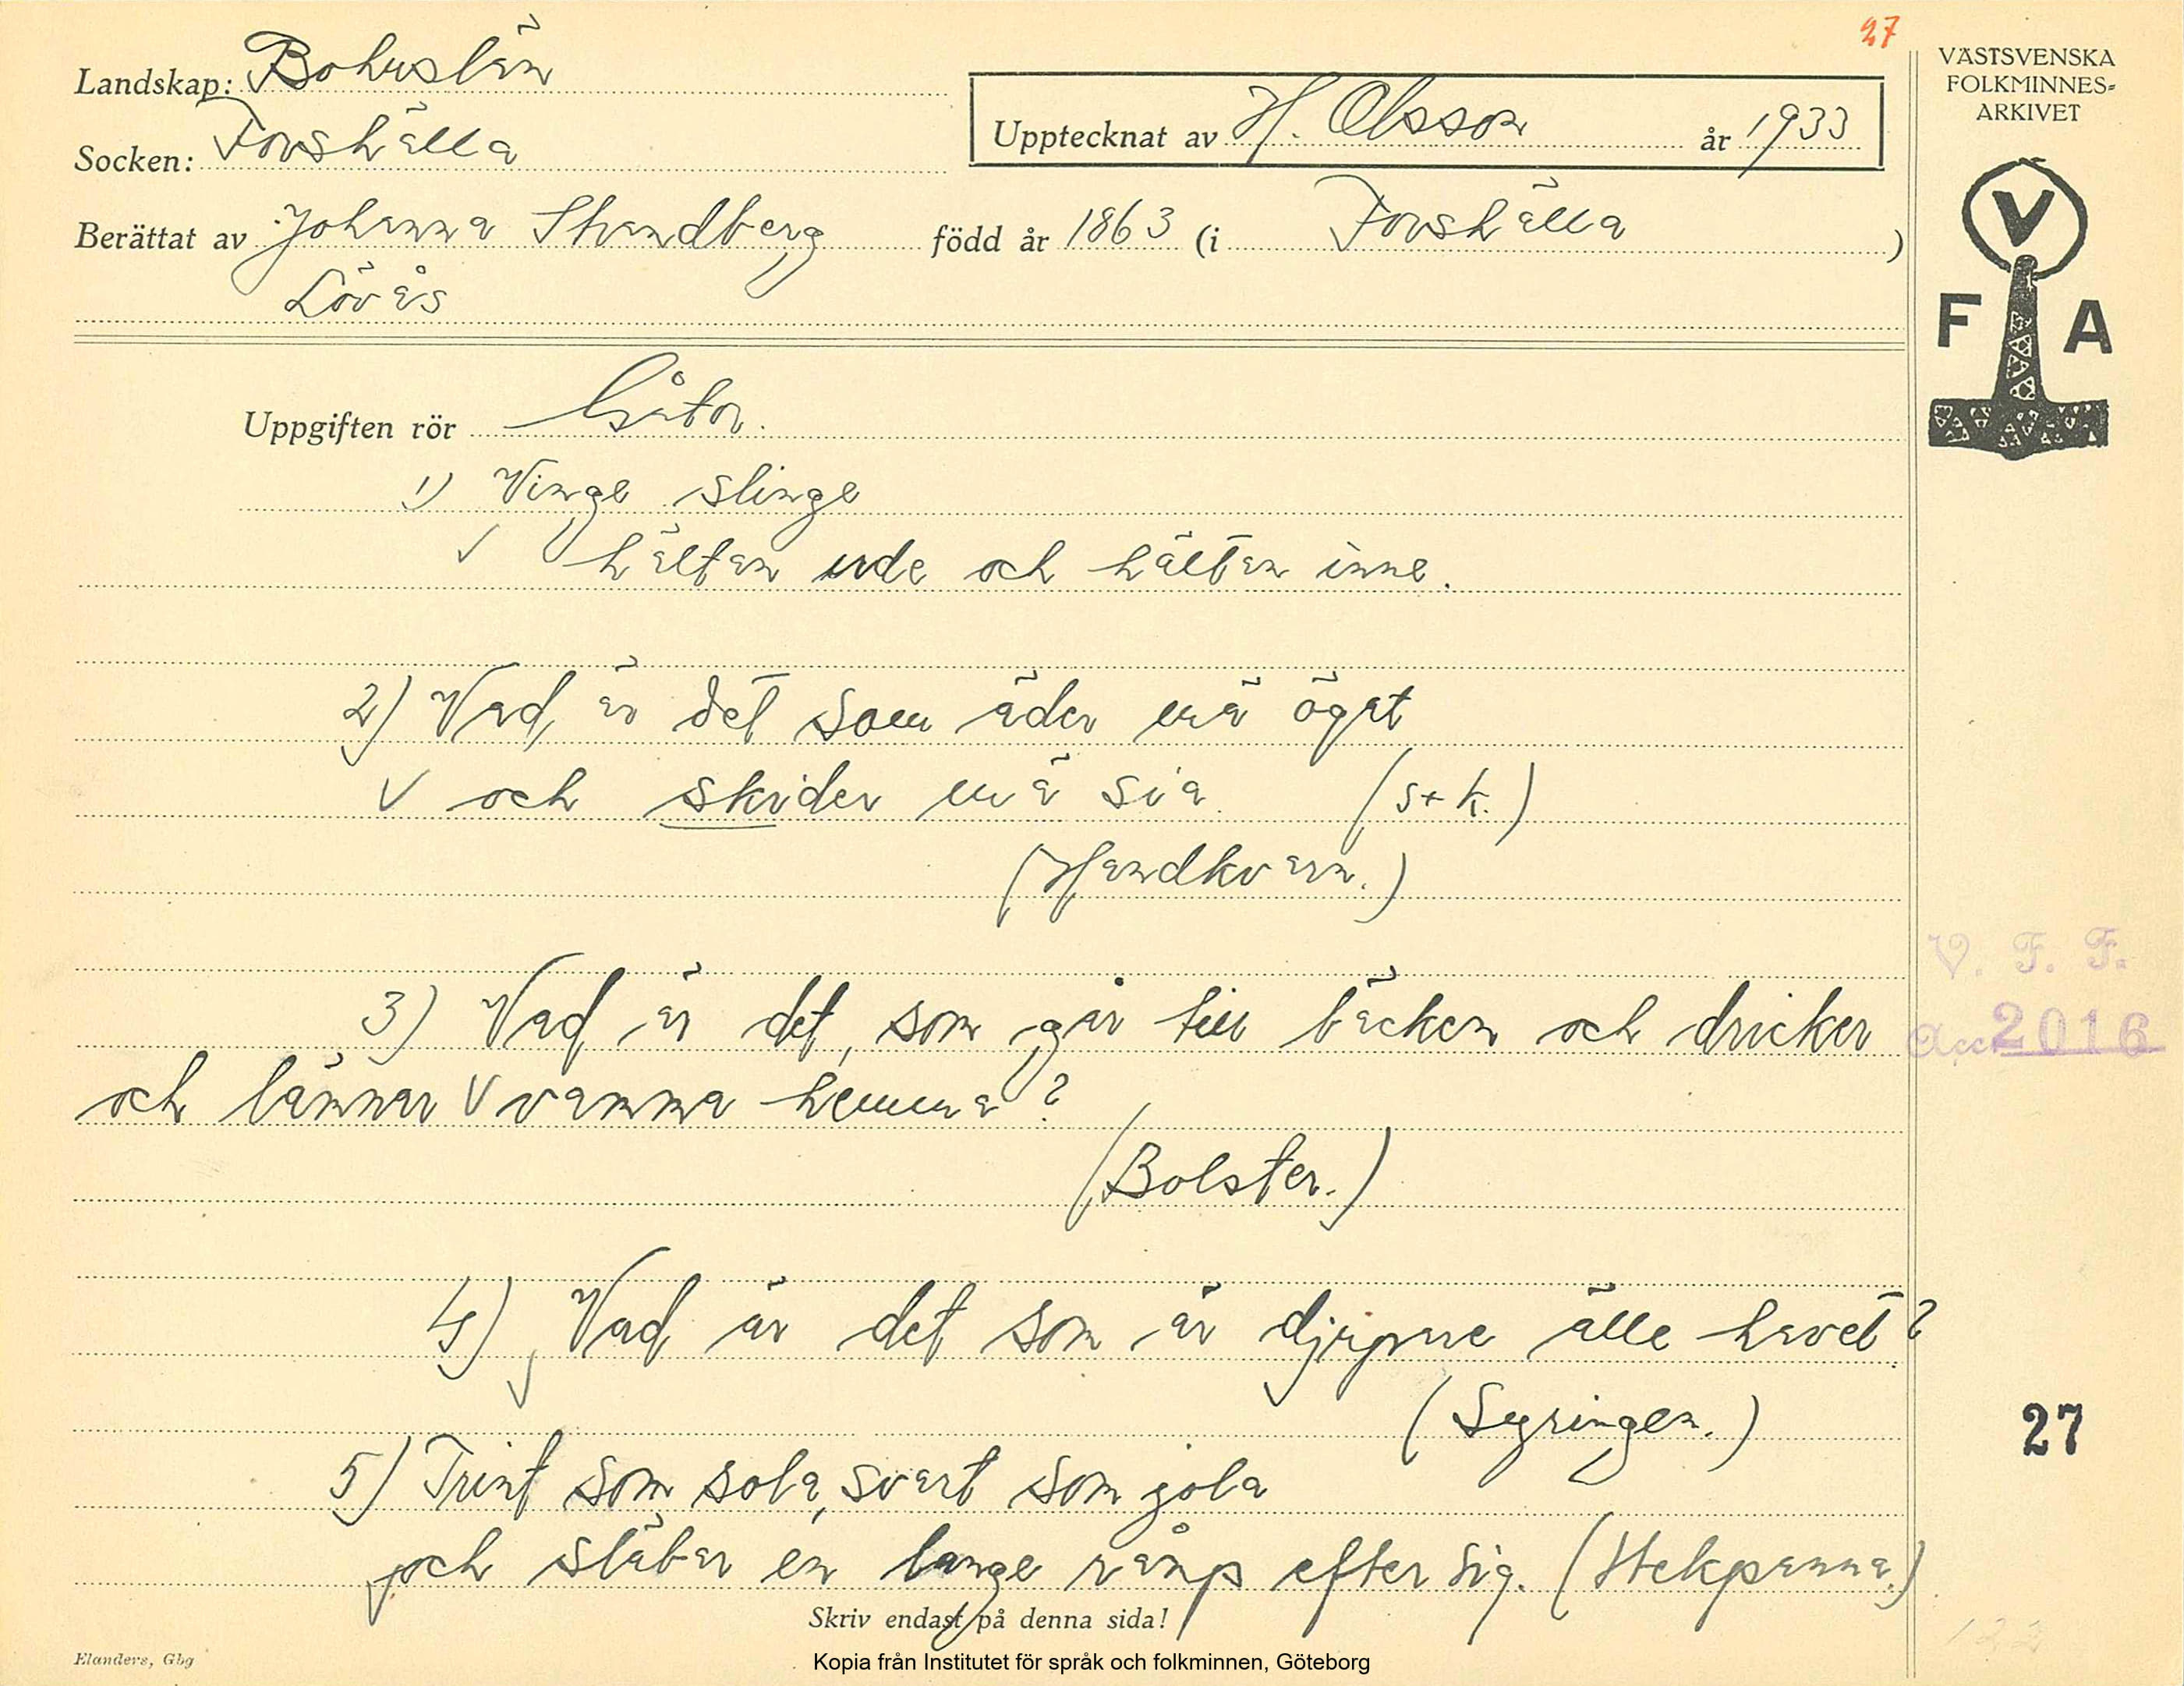 27
Landskap: Bohuslän
Socken: Forshälla
Upptecknat av H. Olsson år 1933
Berättat av Johanna Strandberg född år 1863 (i Forshälla)
Lövås
VÄSTSVENSKA
FOLKMINNES-
ARKIVET
V
F A
Uppgiften rör Gåtor.
1) Vinge slinge
√ hälften ude och hälften inne.
2) Vad är det som äder mä ögat
√ och skider mä sia (s+k.)
(Handkvarn.)
3) Vad är det, som går till bäcken och dricker
och lämnar √ vamma hemma?
(Bolster.)
V. F. F.
Acc 2016
4) Vad är det som är djupare älle havet?
(Syringen.)
27
5) Trint som sola, svart som jola
och släbar en lange rämp efter sig. (Stekpanna.)
Skriv endast på denna sida!
Elanders, Gbg
Kopia från Institutet för språk och folkminnen, Göteborg